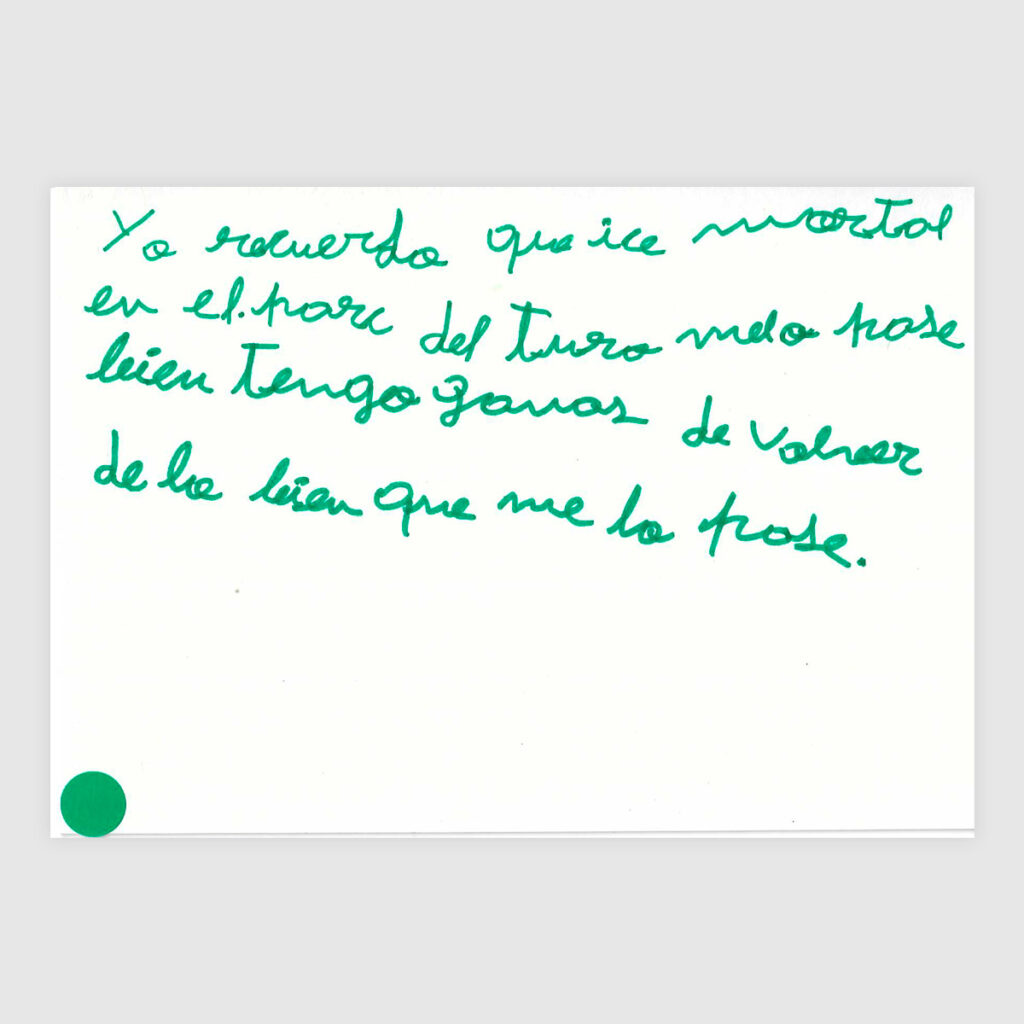 Yo recuerdo que ice mortal
en el parc del Turo melo pase
bien Tengo ganas de volver
de lo bien que me lo pase.